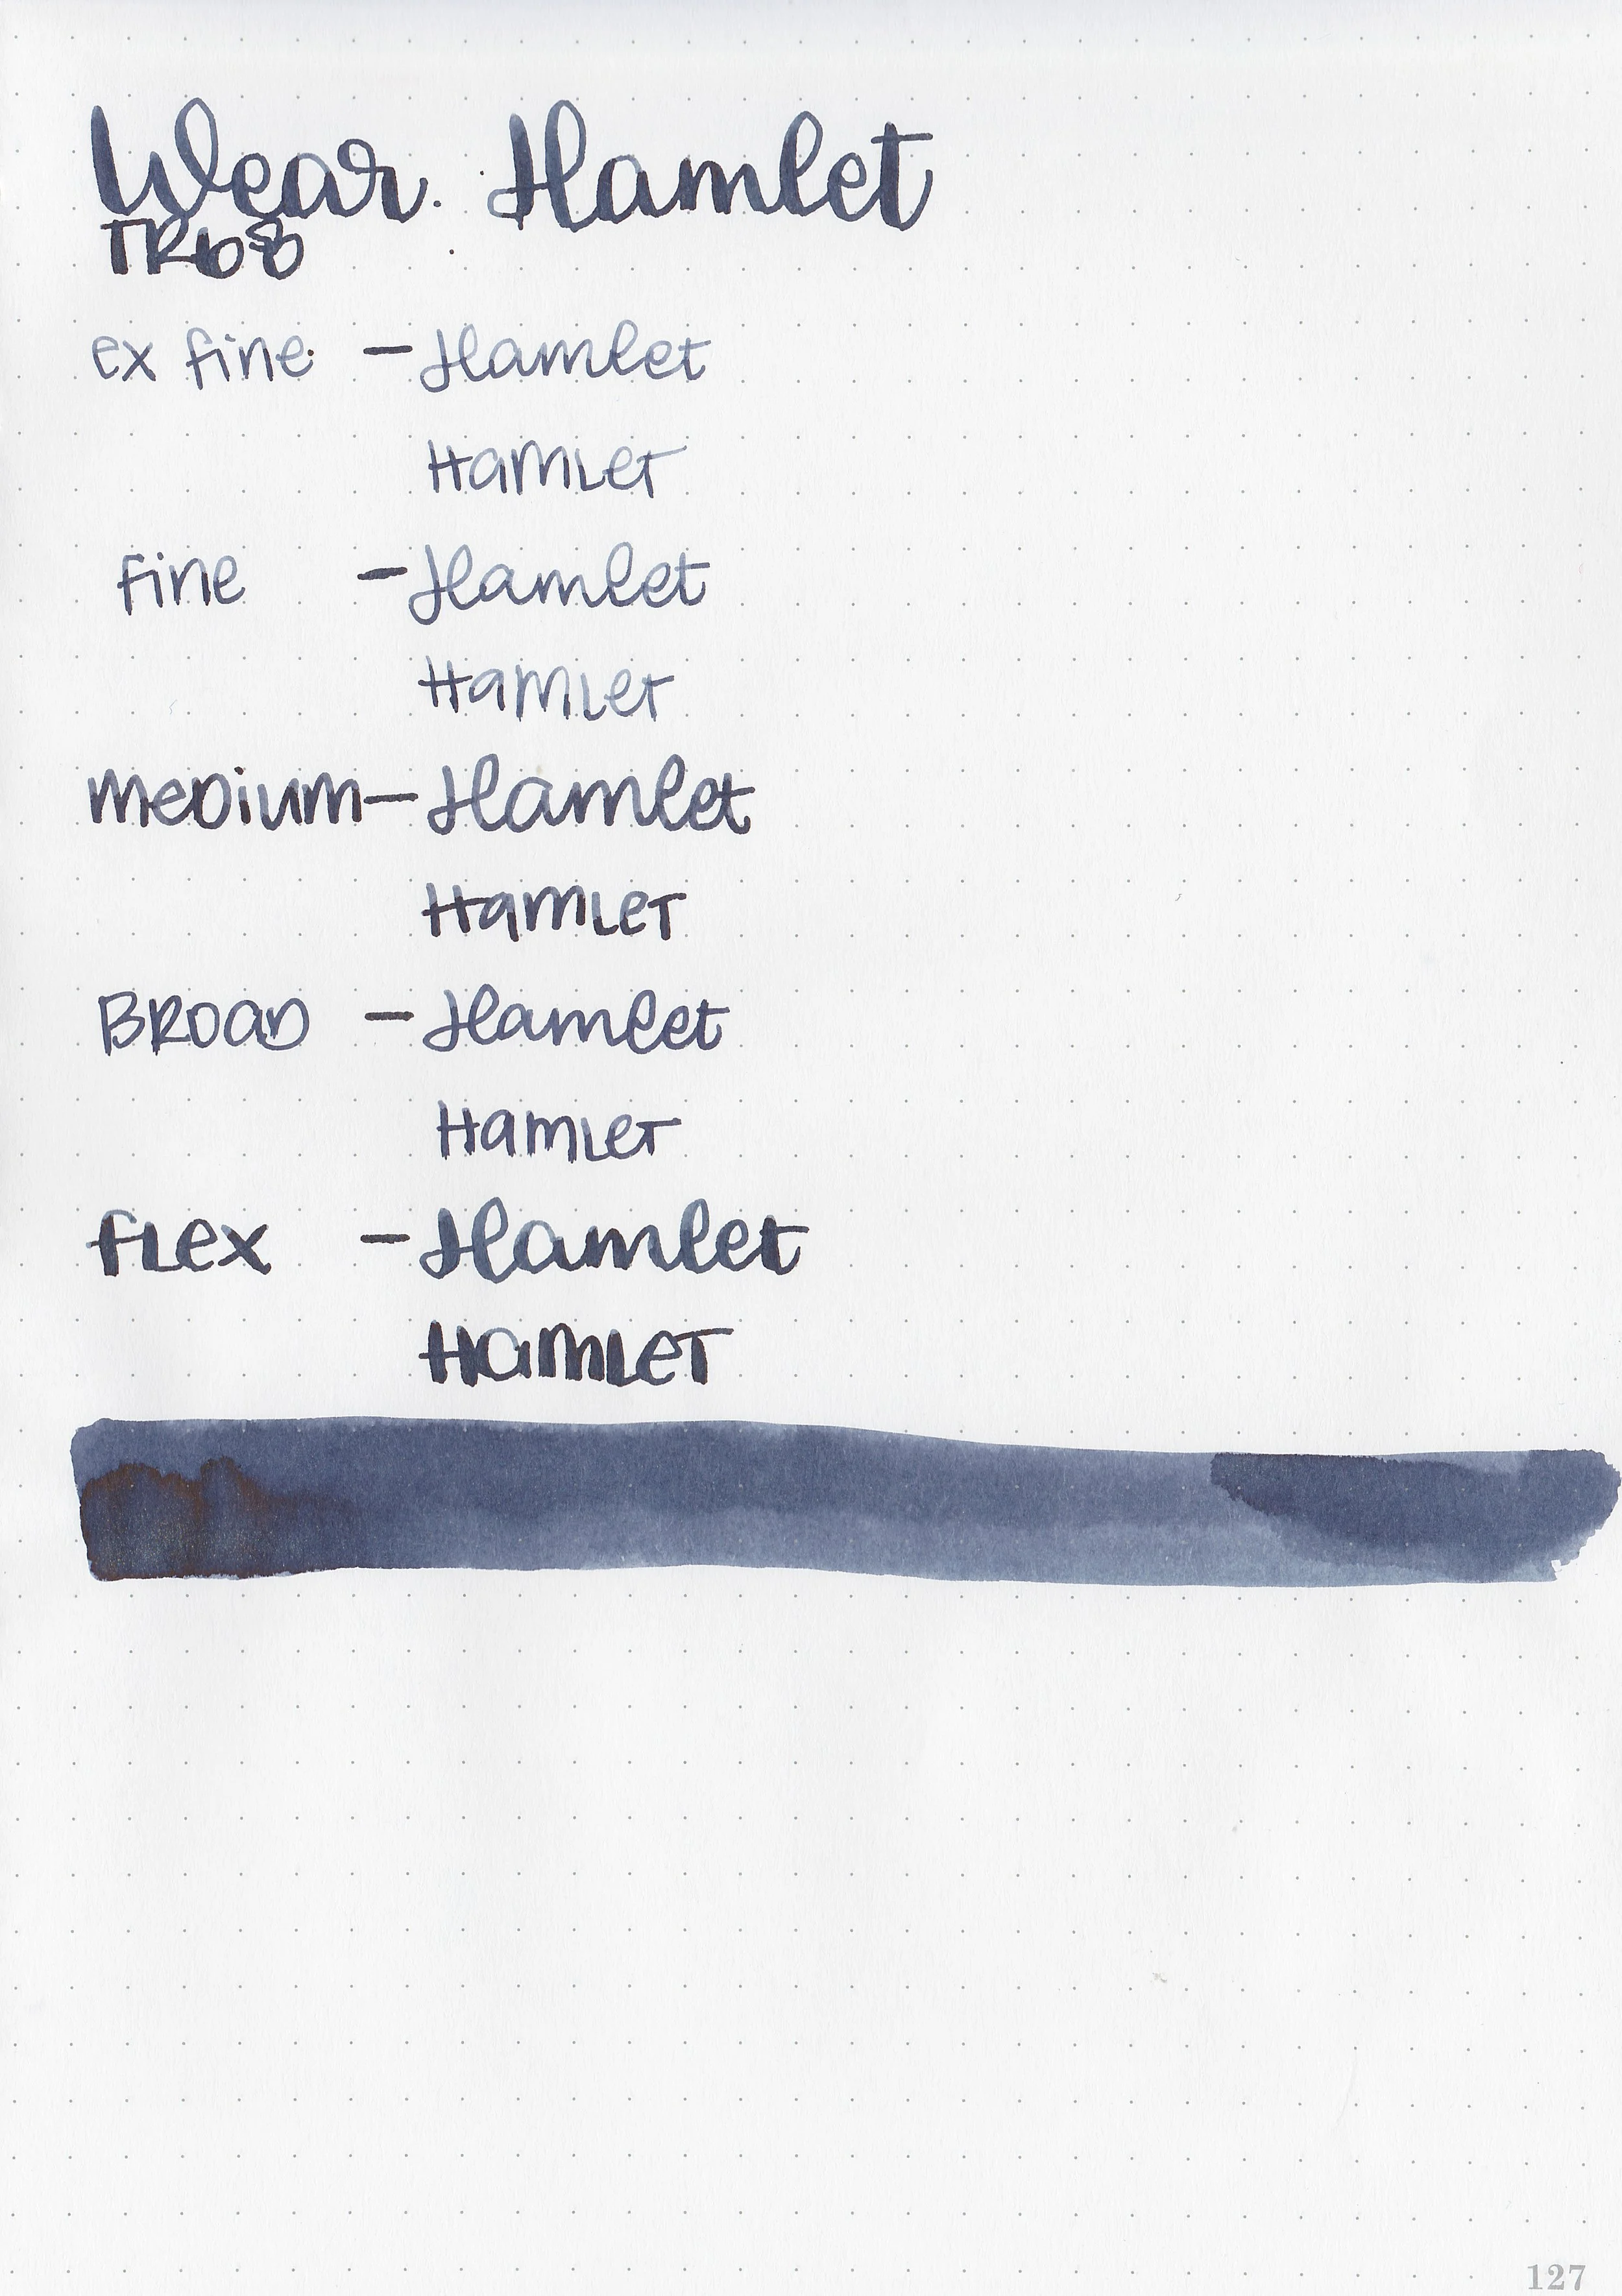 Wear. Hamlet
TR68
ex fine - Hamlet
Hamlet
fine - Hamlet
Hamlet
medium - Hamlet
Hamlet
Broad - Hamlet
Hamlet
flex - Hamlet
Hamlet
127